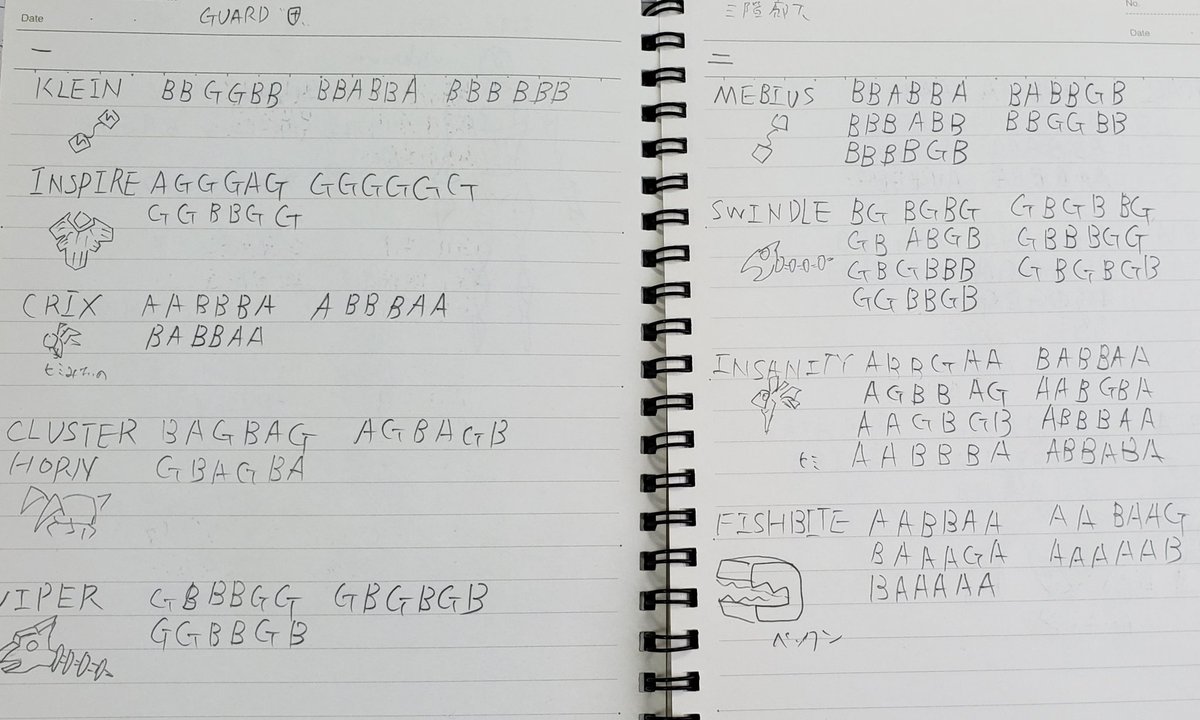 Date GUARD
一
KLEIN BBGGBB BBABBA BBBBBB
INSPIRE AGGGAG GGGGGG
GGBBGG
CRIX AABBBA ABBBAA
BABBAA
CLUSTER BAGBAG AGBAGB
HORN GBAGBA
VIPER GBBBGG GBGBGB
GGBBGB
No.
Date
二
MEBIUS BBABBA BABBGB
BBBABB BBGGBB
BBBBGB
SWINDLE BGBGBG GBGBBG
GBABGB GBBBGG
GBGBBB GBGBGB
GGBBGB
INSANITY ABBGAA BABBAA
AGBBAG AABGBA
AAGBGB ABBBAA
AABBBA ABBABA
FISHBITE AABBAA AABAAG
BAAAGA AAAAAB
BAAAAA